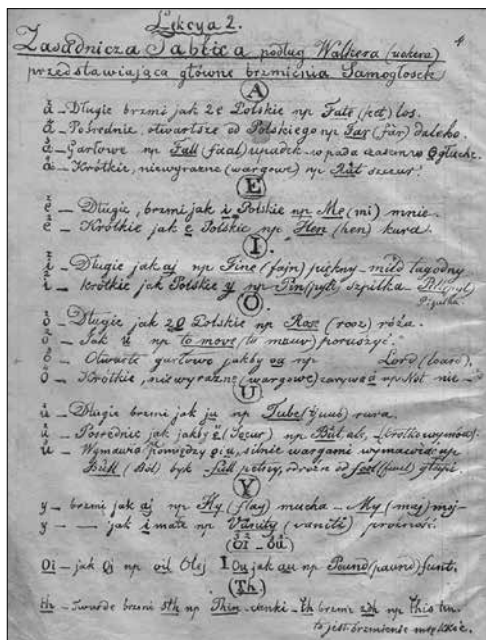 Lekcya 2.
4
Zasadnicza Tablica podług Walkera (uokera)
przedstawiająca główne brzmienia Samogłosek
A
a – Długie brzmi jak 2e Polskie np Fate (feet) los.
a – Pośrednie, otwartsze od Polskiego np Far (får) daleko.
a – Garłowe np Fall (faal) upadek – wpada czasem w O głuche.
a – Krótkie, niewyrazne (wargowe) np Rat szczur.
E
e – Długie, brzmi jak i Polskie np Me (mi) mnie.
e – Krótkie jak e Polskie np Hen (hen) kura.
I
i – Długie jak aj np Fine (fajn) piękny – mild łagodny
i – krótkie jak Polskie y np Pin (pyn) szpilka – Pill (pyl)
Pigułka
O
o – Długie jak 2o Polskie np Rose (rooz) róża.
o – Jak u np to move (tu mouv) poruszyć.
o – Otwarte garłowe jakby oa np Lord (loard).
o – Krótkie, niewyrazne (wargowe) zarywa a np Not nie –
U
u – Długie brzmi jak ju np Tube (tjuub) rura.
u – Pośrednie jak jakby np But ale,
u – Wymawia pomiędzy o i u, silnie wargami wymawiać np
Bull (Bul) byk – full pełny, odróżn od fool (fuul) głupi.
Y
y – brzmi jak aj np Fly (flaj) mucha – My (maj) mój –
y – — jak i małe np Vanity (vaniti) próżność.
oi – ou
oi – jak oj np oil Olej I Ou jak au np Pound (paund) funt.
Th
th – Twarde brzmi sth np Thin – cienki – th brzmi zdh np this ten.
to jest brzmienie miękkie.